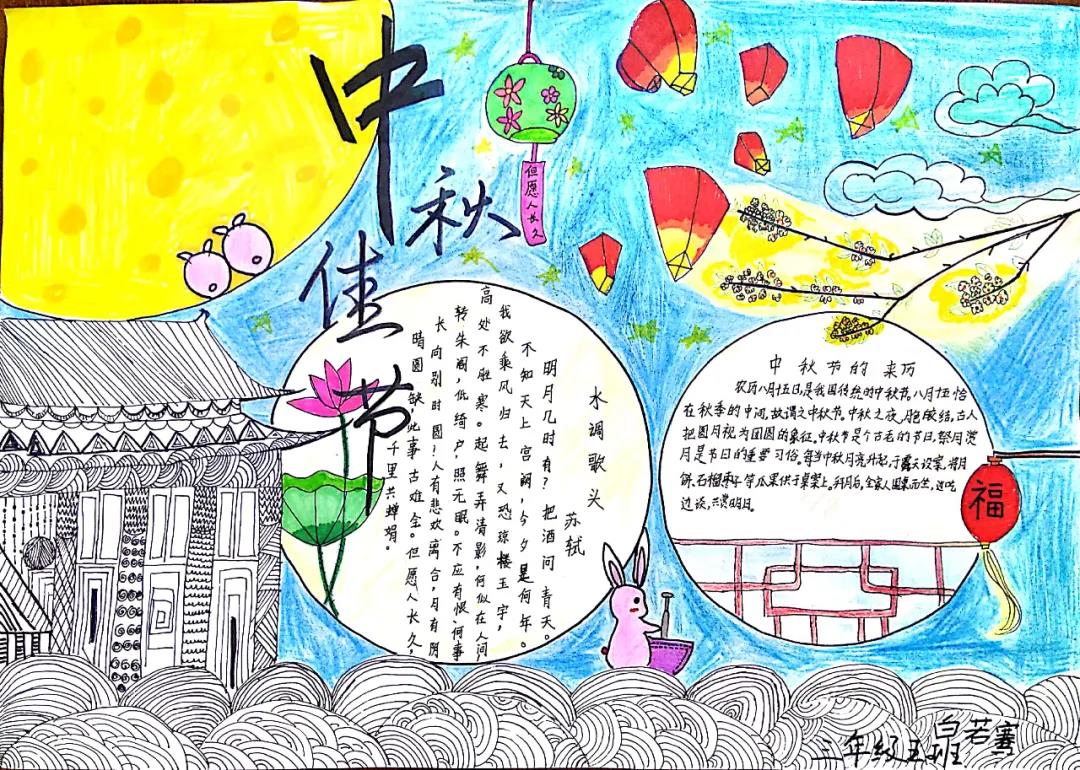 中秋佳节
但愿人长久
水调歌头
苏轼
明月几时有？把酒问青天。
不知天上宫阙，今夕是何年。
我欲乘风归去，又恐琼楼玉宇，
高处不胜寒。起舞弄清影，何似在人间，
转朱阁，低绮户，照无眠。不应有恨，何事
长向别时圆！人有悲欢离合，月有阴
晴圆缺，此事古难全。但愿人长久，
千里共婵娟。
中秋节的来历
农历八月十五日是我国传统的中秋节，八月十五恰
在秋季的中间，故谓之中秋节。中秋之夜，月色皎洁，古人
把圆月视为团圆的象征。中秋节是个古老的节日，祭月赏
月是节日的重要习俗。每当中秋月亮升起，于露天设案，将月
饼、石榴、枣子等瓜果供于桌案上。拜月后，全家人围桌而坐，边吃
边谈，共赏明月。
福
三年级五班
白若